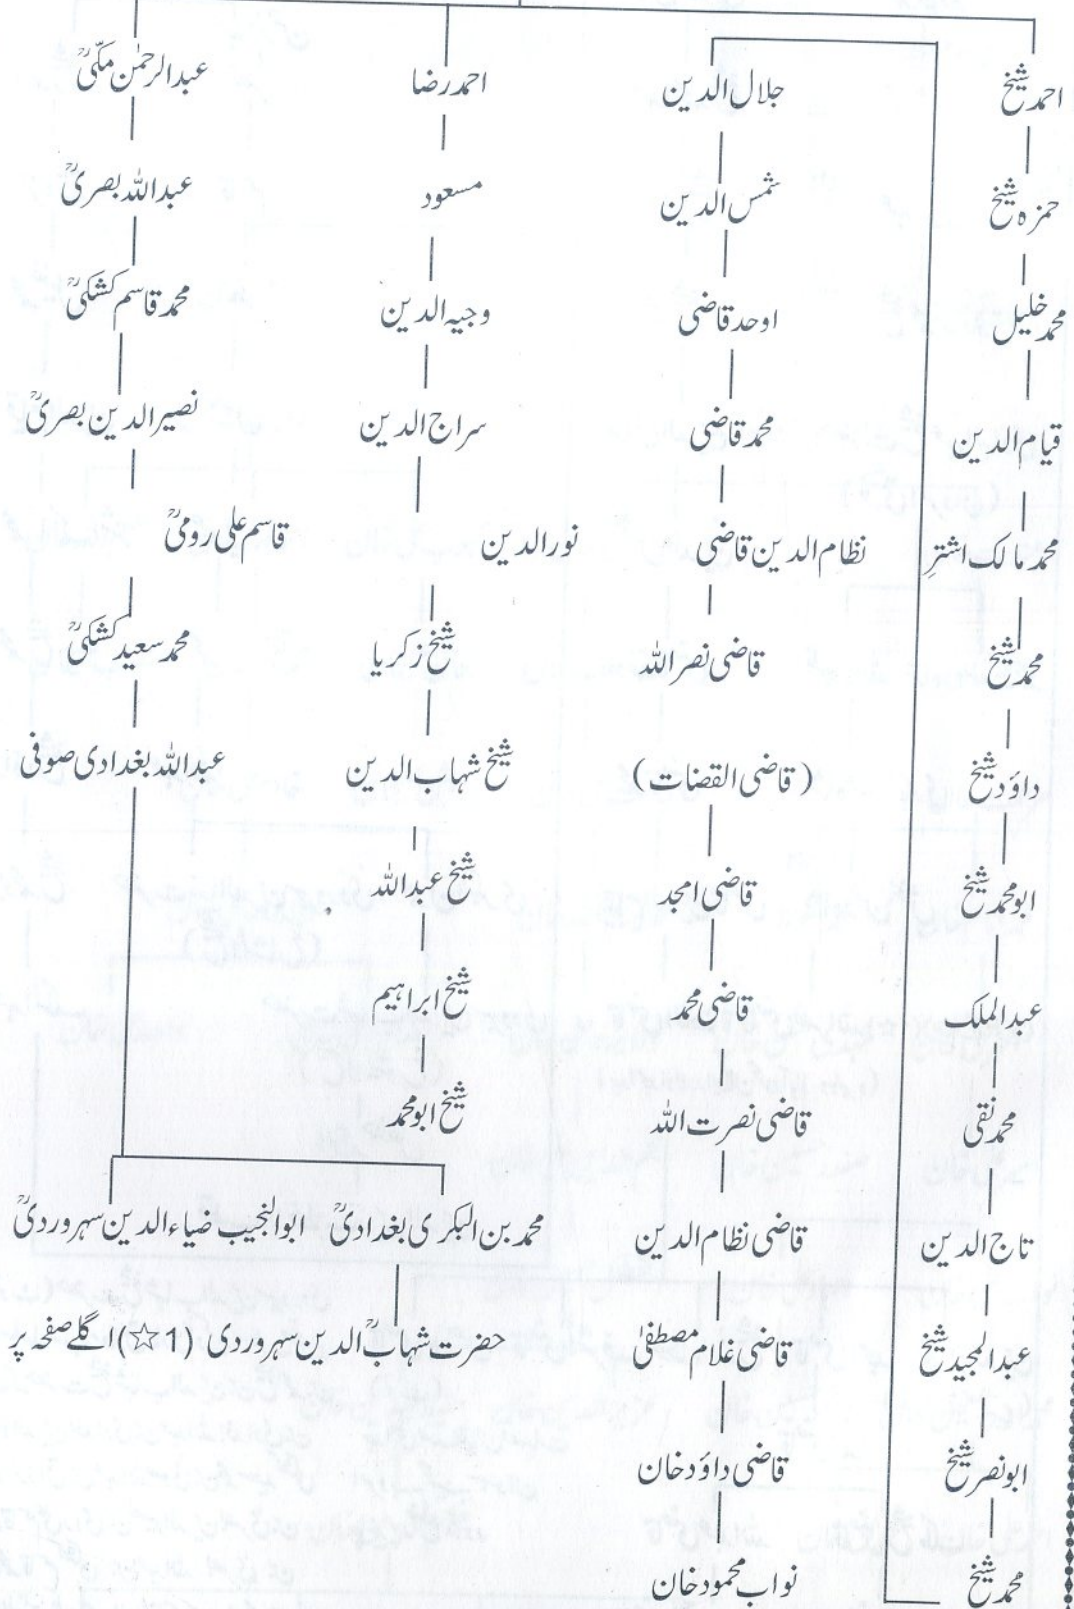 احمد شیخ
حمزہ شیخ
محمد خلیل
قیام الدین
محمد مالک اشترِ
محمد شیخ
داؤد شیخ
ابو محمد شیخ
عبدالملک
محمد نقی
تاج الدین
عبدالمجید شیخ
ابونصر شیخ
محمد شیخ
جلال الدین
شمس الدین
اوحد قاضی
محمد قاضی
نظام الدین قاضی
قاضی نصر اللہ
(قاضی القضات)
قاضی امجد
قاضی محمد
قاضی نصرت اللہ
قاضی نظام الدین
قاضی غلام مصطفیٰ
قاضی داؤد خان
نواب محمود خان
احمد رضا
مسعود
وجیہ الدین
سراج الدین
نور الدین
شیخ زکریا
شیخ شہاب الدین
شیخ عبداللہ
شیخ ابراہیم
شیخ ابو محمد
عبدالرحمٰن مکّیؒ
عبداللہ بصریؒ
محمد قاسم کشکیؒ
نصیر الدین بصریؒ
قاسم علی رومیؒ
محمد سعید کشکیؒ
عبداللہ بغدادی صوفی
محمد بن البکری بغدادیؒ
ابوالنجیب ضیاء الدین سہروردیؒ
حضرت شہابؒ الدین سہروردی (1☆) اگلے صفحہ پر